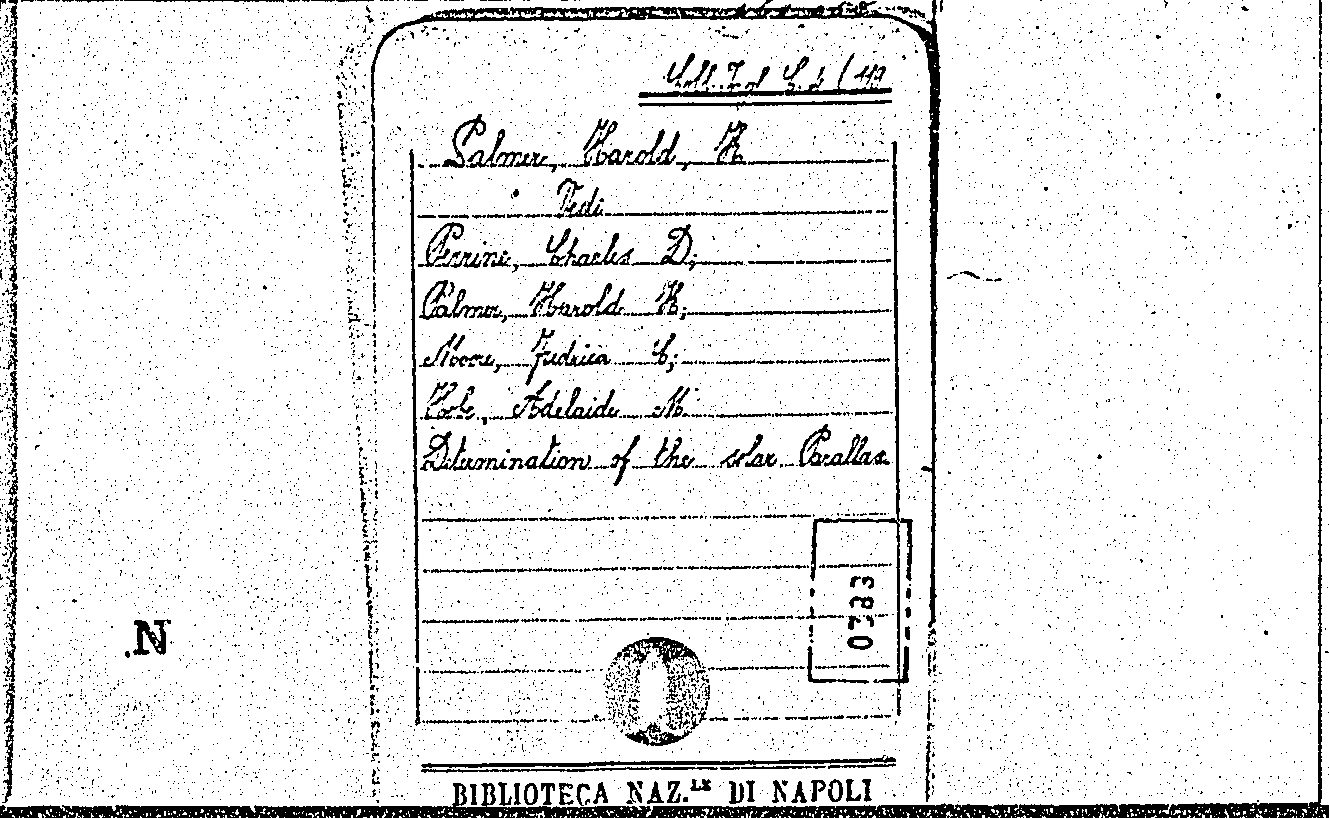 Palmer, Harold, K
Vedi
Perrine, Charles D;
Palmer, Harold K;
Moore, Fredrica C;
Hobe, Adelaide M
Determination of the solar Parallax
0383
N
BIBLIOTECA NAZ.LE DI NAPOLI